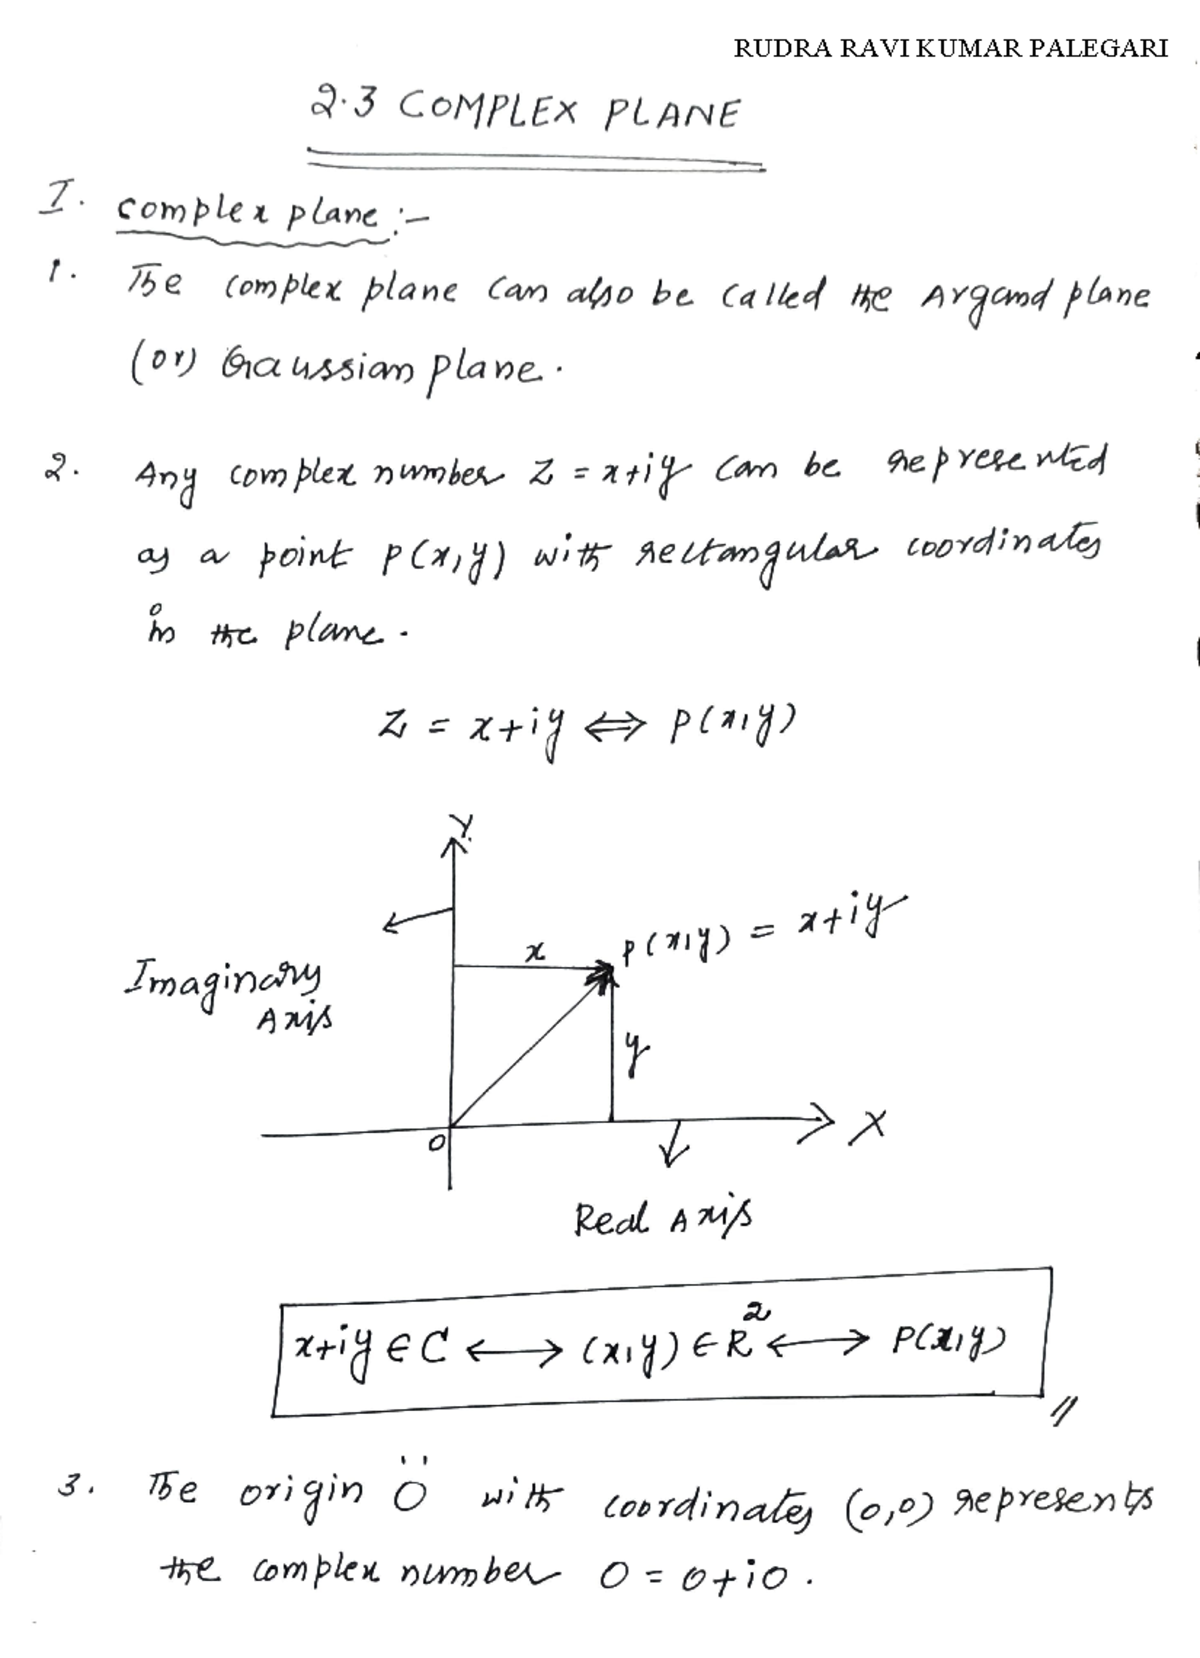 RUDRA RAVI KUMAR PALEGARI
2.3 COMPLEX PLANE
I. complex plane :-
1. The complex plane can also be called the Argand plane
(or) Gaussian plane.
2. Any complex number Z = x+iy can be represented
as a point P(x,y) with rectangular coordinates
in the plane.
Z = x+iy ⇔ P(x,y)
Y
x
P(x,y) = x+iy
Imaginary
Axis
y
O
X
Real Axis
x+iy ∈ C ⟷ (x,y) ∈ R² ⟷ P(x,y)
3. The origin "O" with coordinates (0,0) represents
the complex number 0 = 0+i0.